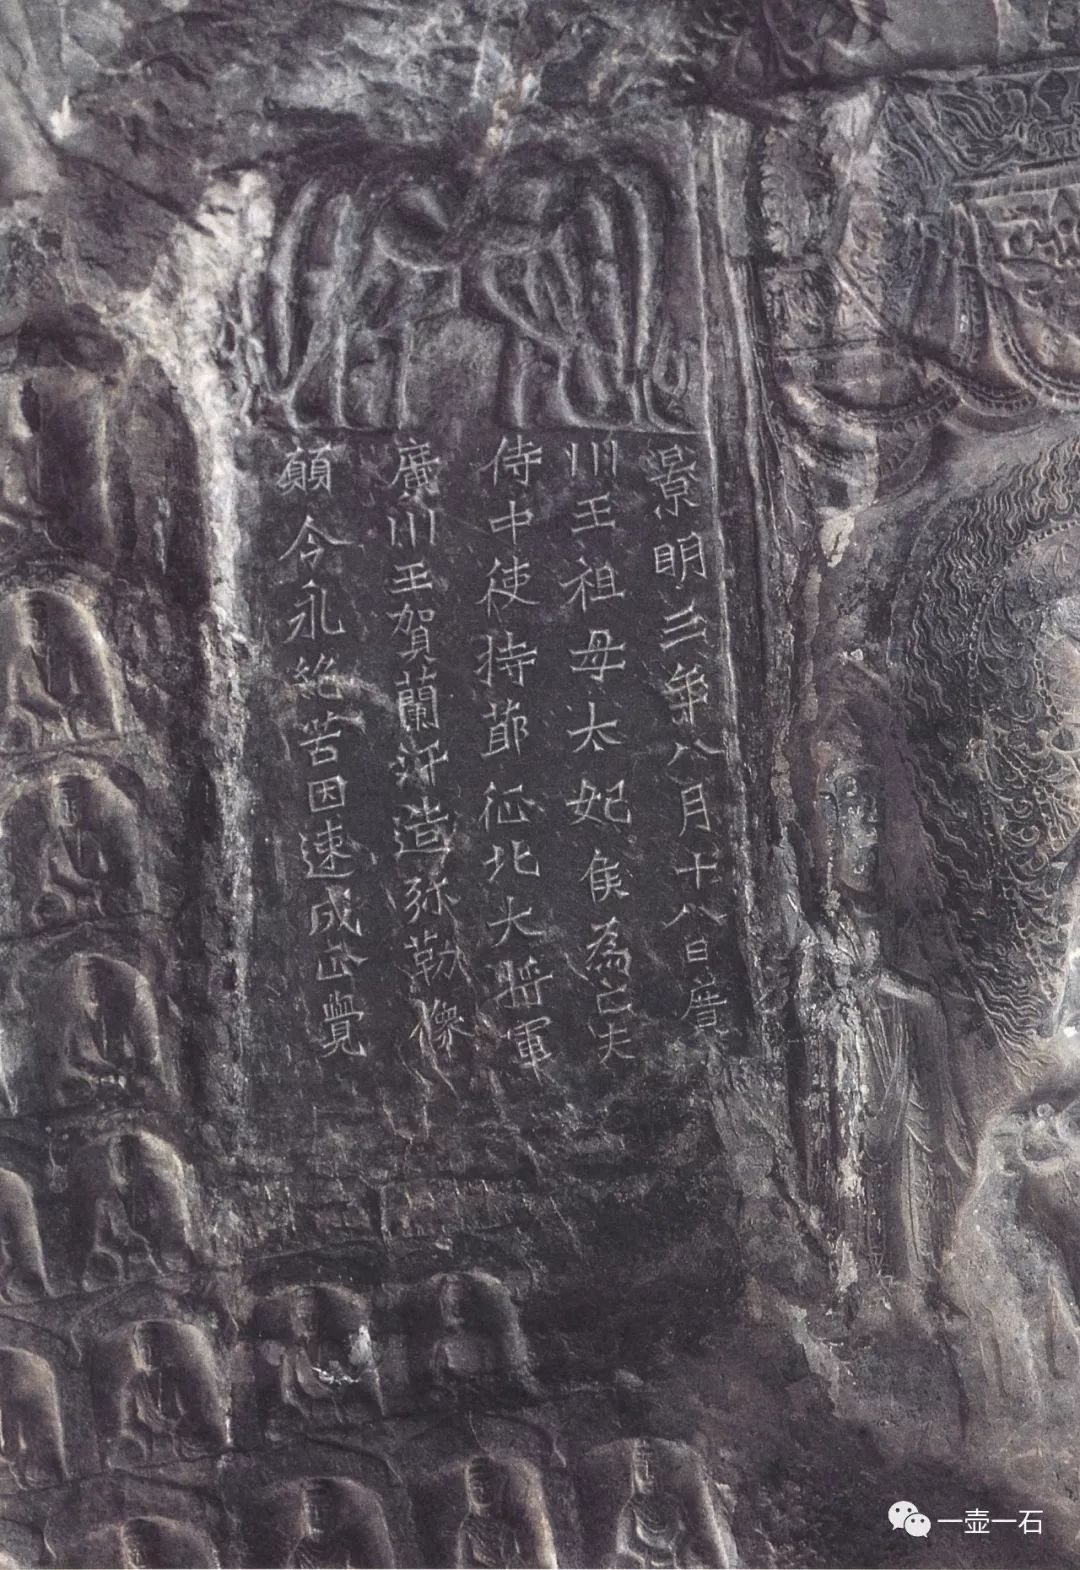 景明三年八月十八日廣
川王祖母太妃侯為亡夫
侍中使持節征北大將軍
廣川王賀蘭汗造弥勒像
願令永絕苦因速成正覺
一壶一石